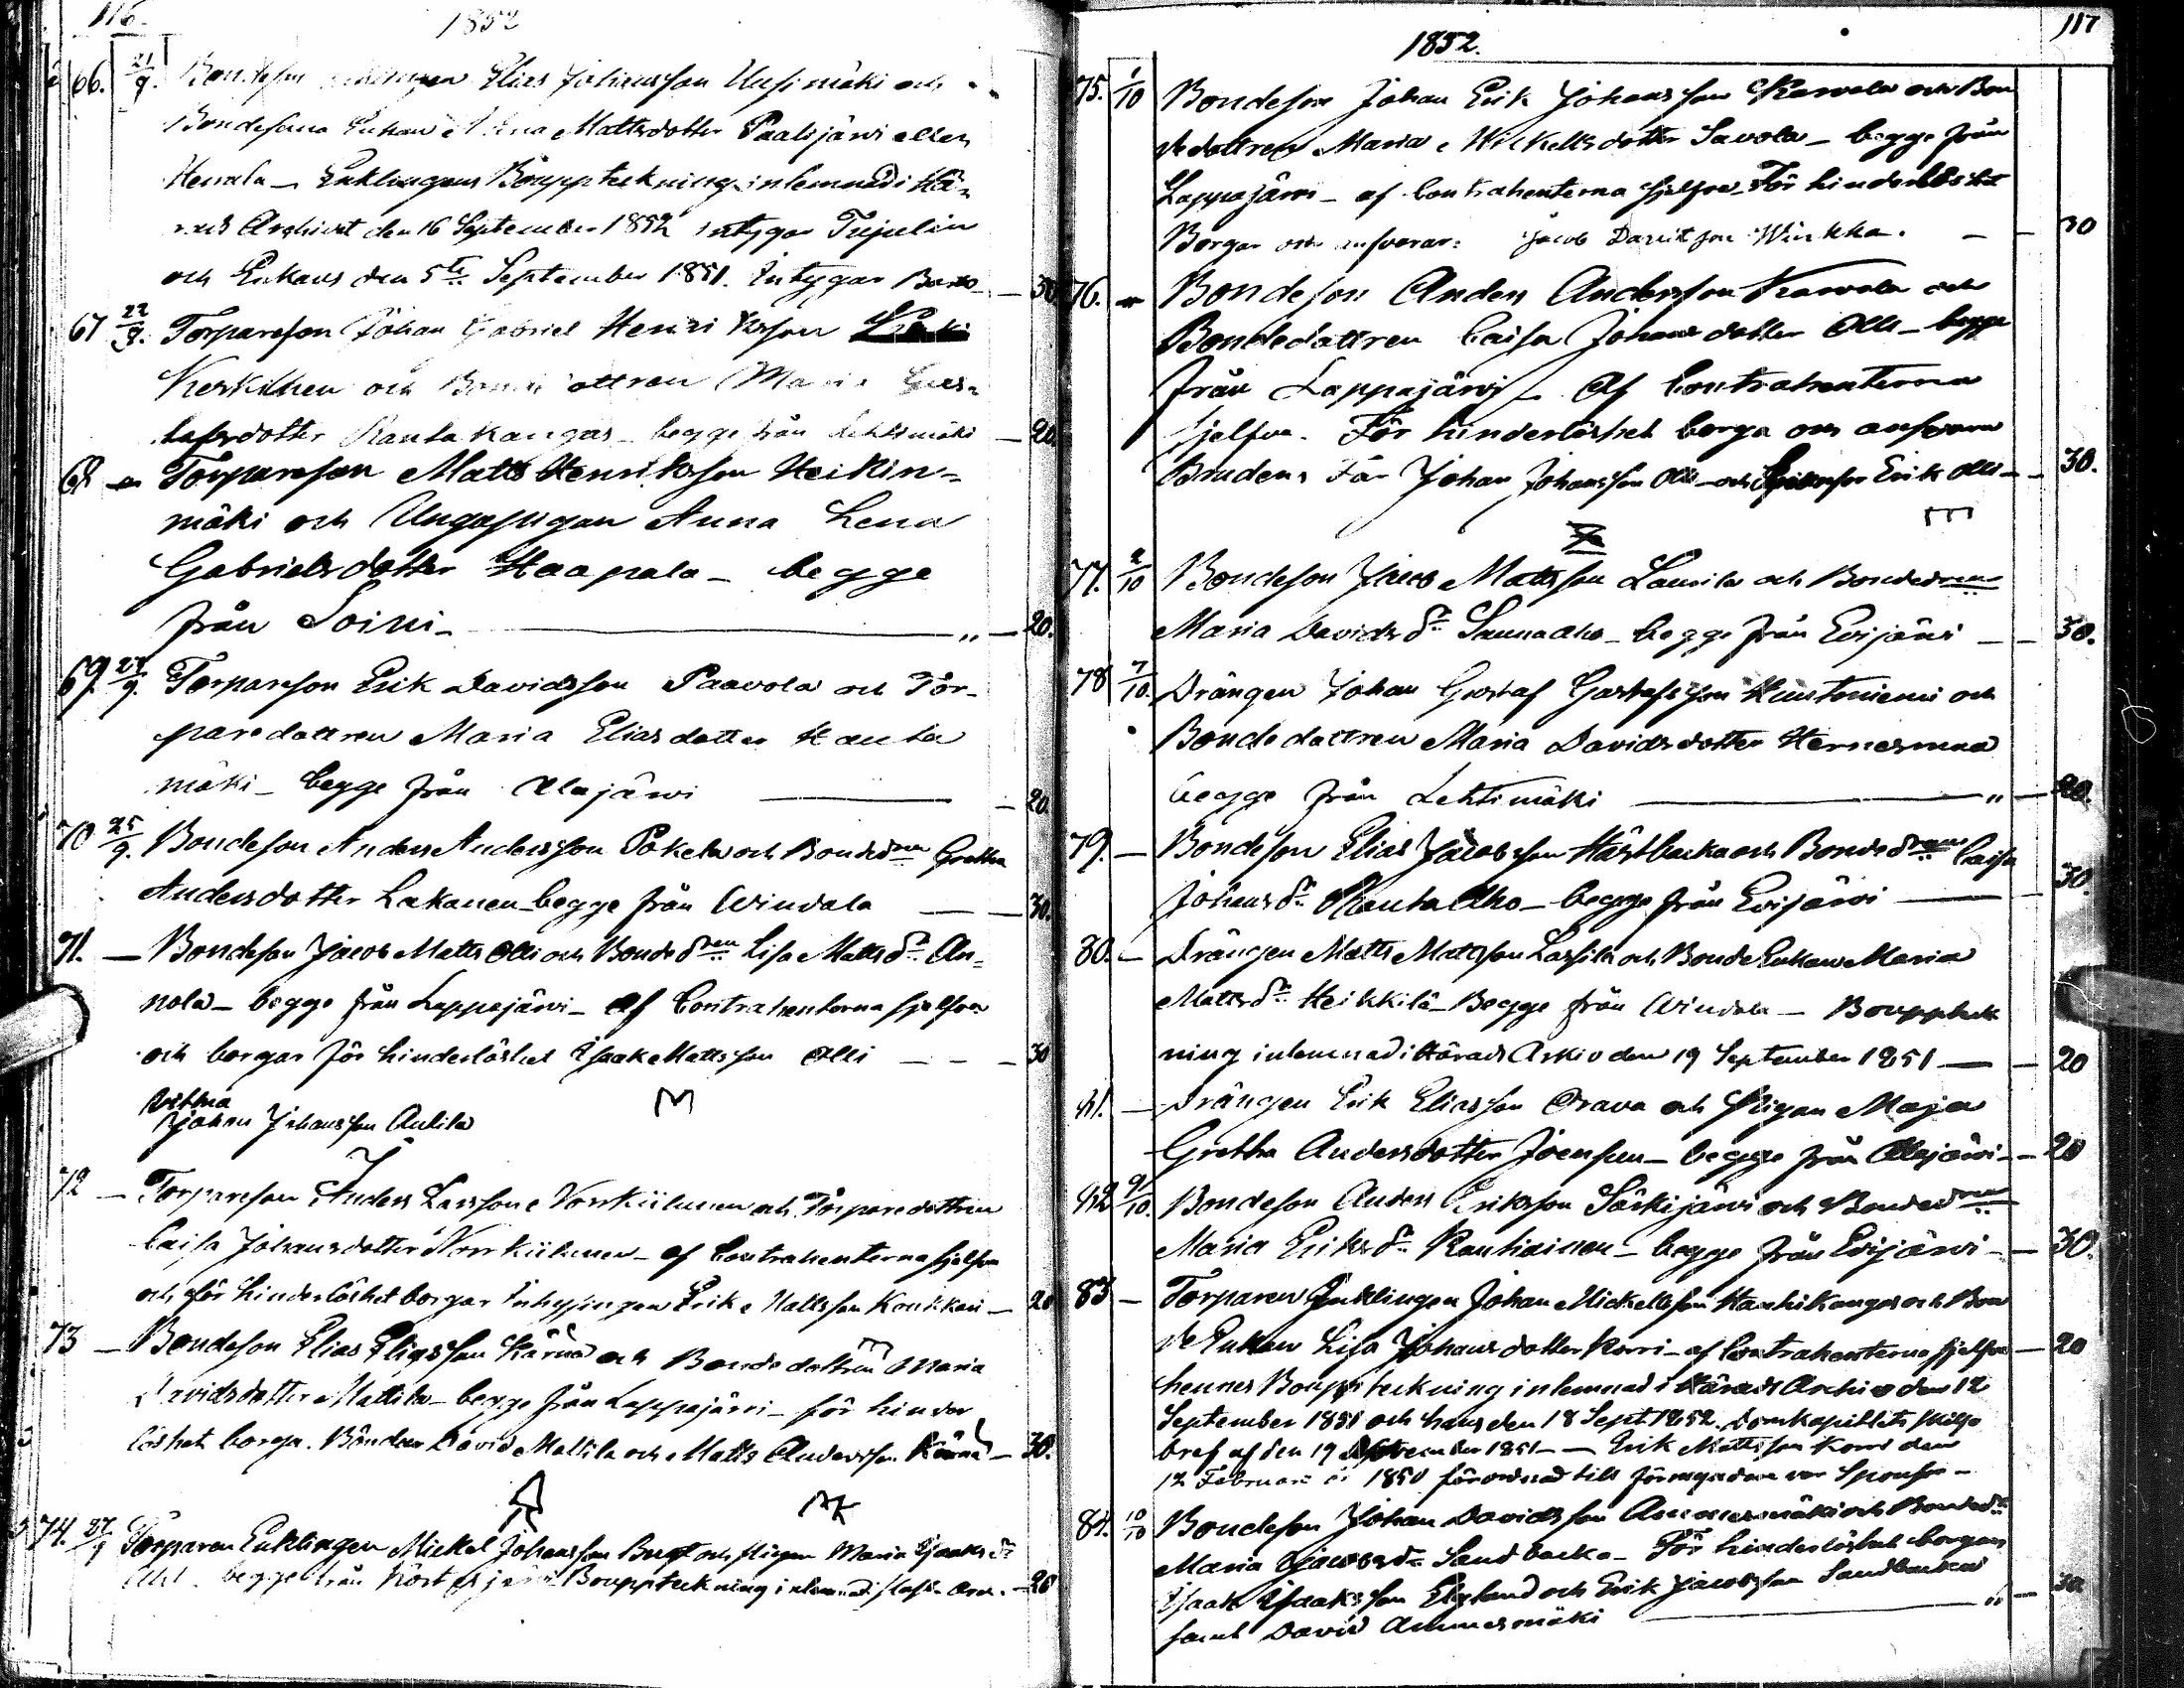 116.
1852
66. 21/9. Bondeson Elias Johansson Uusimäki och
Bondesena Enkan Mattsdotter Paalijärvi eller
Herrala – Enklingens Bouppteckning inlemnad i Hä-
rads Archivet den 16 September 1852 intygar
och Enkans den 5te September 1851. Intygar — 30
67 22/9. Torpareson Johan Gabriel Henriksson
Kerkinen och Bondedottren Maria Gus-
tafsdotter Rantakangas – begge från Lehtimäki — 20.
68 — Torpareson Matts Henriksson Heikin-
mäki och Ungapigan Anna Lena
Gabrielsdotter Haapala – begge
från Soini – „ — 20.
69. 24/9. Torpareson Erik Davidsson Paavola och Tor-
paredottren Maria Eliasdotter Hauta
mäki – begge från Alajärvi — 20.
70 25/9. Bondeson Anders Andersson Pokela och Bondedren Gretha
Andersdotter Lakanen – begge från Windala — 30.
71. — Bondeson Jacob Matts Olli och Bondedren Lisa Mattsdr An-
nola – begge från Lappajärvi – Af Contrahenterna sjelfva
och borgar för hinderlöshet Isaak Mattsson Olli — 30
Vittna
Johan Johansson Antila
72 — Torpareson Anders Larsson Norrkiilunen och Torparedottren
Caisa Johansdotter Norrkiilunen – af Contrahenterna sjelfva
och för hinderlöshet borgar Inhysingen Erik Mattsson Koukkari — 20
73 — Bondeson Elias Eliasson Kärnä och Bondedottren Maria
Davidsdotter Mattila – begge från Lappajärvi – för hinder
löshet borga. Bönder David Mattila och Matts Andersson Kärnä — 30.
74. 27/9 Torparen Enklingen Mickel Johansson och pigan Maria Isaksdr
begge från Kortesjärvi Bouppteckning inlemnad — 20
117
1852.
75. 1/10 Bondeson Johan Erik Johansson Kawala och Bon
dedottren Maria Mickelsdotter Savola – begge från
Lappajärvi – af Contrahenterna sjelfva – För hinderlöshet
Borgar och ansvarar: Jacob Davitson Winkka. — 30
76. — Bondeson Anders Andersson Kawala och
Bondedottren Caisa Johansdotter Olli – begge
från Lappajärvi – Af Contrahenterna
sjelfva. För hinderlöshet borga och ansvara
Brudens Far Johan Johansson Olli – och Erik Olli — 30.
77. 2/10 Bondeson Jacob Mattsson Laurila och Bondedren
Maria Davidsdr Saunaaho – begge från Evijärvi — 30.
78 7/10. Drängen Johan Gustaf Gustafsson Kuntoniemi och
Bondedottren Maria Davidsdotter Hernesmaa
begge från Lehtimäki „ — 20.
79. — Bondeson Elias Jacobsson Hästbacka och Bondedren Caisa
Johansdr Rantaaho – begge från Evijärvi — 30.
80. — Drängen Matts Mattsson Lassila och Bonde Enkan Maria
Mattsdr Heikkilä – Begge från Windala – Boupptek
ning inlemnad i Härads Arkiv den 19 September 1851 — 20
81. — Drängen Erik Eliasson Orava och Pigan Maja
Gretha Andersdotter Joensuu – begge från Alajärvi — 20
82 9/10. Bondeson Anders Eriksson Särkijärvi och Bondedren
Maria Eriksdr Rantiainen – begge från Evijärvi — 30.
83 — Torparen Enklingen Johan Mickelsson Hanhikangas och Bon
de Enkan Lisa Johansdotter Korri – af Contrahenterna sjelfva — 20
hennes Bouppteckning inlemnad i Härads Archiv den 12
September 1851 och hans den 18 Sept. 1852. Domkapitlets skilje
bref af den 19 1851 — Erik Mattsson Korri den
12 Februari 1850 förordnad till förmyndare var Sponsor –
84. 10/10 Bondeson Johan Davidsson Ammesmäki och Bondedr
Maria Jacobsdr Sandbacka – För hinderlöshet borgar
Isaak Isaaksson Elgland och Erik Jacobsson Sandbacka
samt David Ammesmäki „ — 30